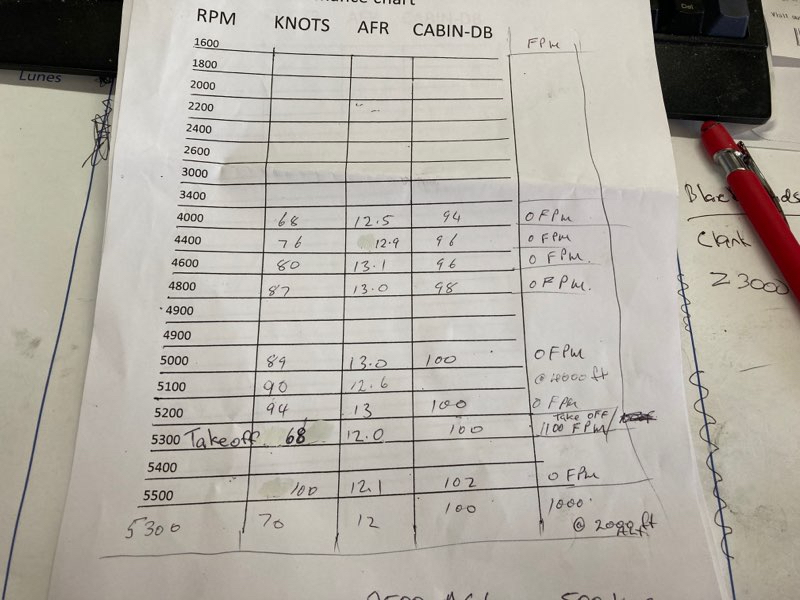 mance chart
RPM KNOTS AFR CABIN-DB FPM
1600
1800
2000
2200
2400
2600
3000
3400
4000 68 12.5 94 0 FPM
4400 76 12.9 96 0 FPM
4600 80 13.1 96 0 FPM.
4800 87 13.0 98 0 FPM.
4900
4900
5000 89 13.0 100 0 FPM
5100 90 12.6 @ ft
5200 94 13 100 0 FPM
Take off
5300 Takeoff 68 12.0 100 1100 FPM/
5400
5500 100 12.1 102 0 FPM
5300 70 12 100 1000
@ 2000 ft
Lunes
Del
Clark